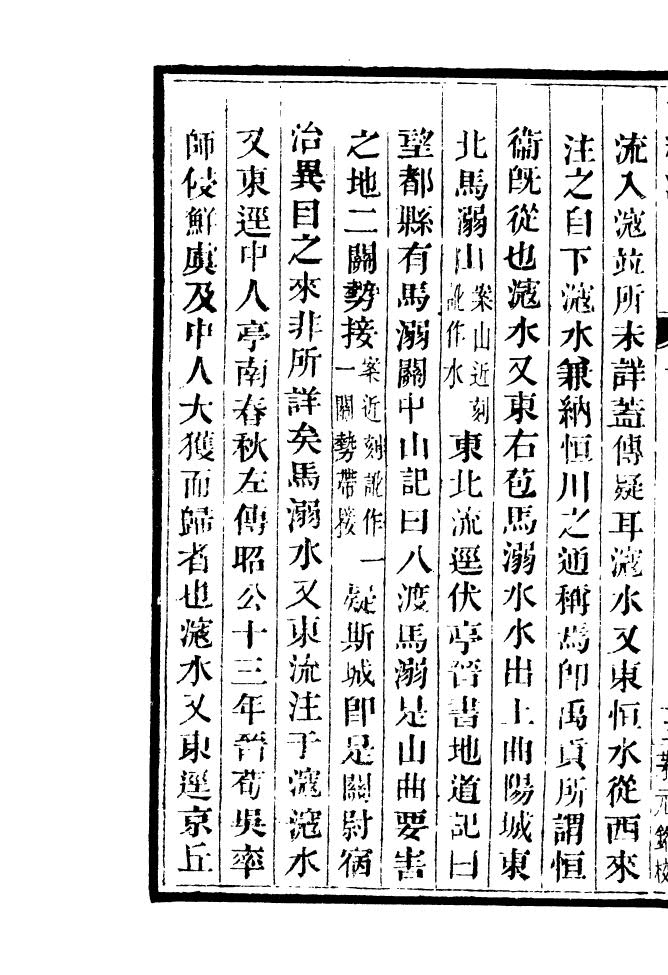 流入滱竝所未詳蓋傳疑耳滱水又東恒水從西來
注之自下滱水兼納恒川之通稱焉卽禹貢所謂恒
衞旣從也滱水又東右苞馬溺水水出上曲陽城東
北馬溺山案山近刻訛作水東北流逕伏亭晉書地道記曰
望都縣有馬溺關中山記曰八渡馬溺是山曲要害
之地二關勢接案近刻訛作一關勢帶接一疑斯城卽是關尉宿
治異目之來非所詳矣馬溺水又東流注于滱滱水
又東逕中人亭南春秋左傳昭公十三年晉荀吳率
師侵鮮虞及中人大獲而歸者也滱水又東逕京丘